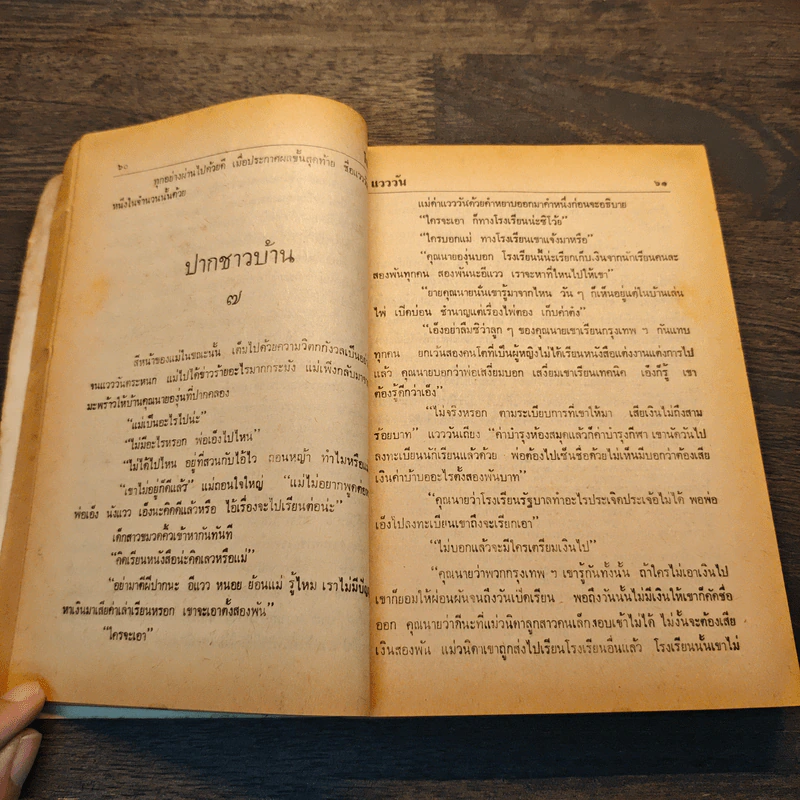 ๖๐
ทุกอย่างผ่านไปด้วยดี เมื่อประกาศผลขั้นสุดท้าย ชื่อแววว
หนึ่งในจำนวนนั้นด้วย
ปากชาวบ้าน
๗
สีหน้าของแม่ในขณะนั้น เต็มไปด้วยความวิตกกังวลเป็นอย่
จนแวววันตระหนก แม่ไปได้ข่าวร้ายอะไรมากระมัง แม่เพิ่งกลับมาจ
มะพร้าวให้บ้านคุณนายองุ่นที่ปากคลอง
“แม่เป็นอะไรไปน่ะ”
“ไม่มีอะไรหรอก พ่อเอ็งไปไหน”
“ไม่ได้ไปไหน อยู่ที่สวนกับไอ้ไว ถอนหญ้า ทำไมหรือแม่
“เขาไม่อยู่ก็ดีแล้ว” แม่ถอนใจใหญ่ “แม่ไม่อยากพูดต่อห
พ่อเอ็ง นังแวว เอ็งน่ะคิดดีแล้วหรือ ไอ้เรื่องจะไปเรียนต่อน่ะ”
เด็กสาวขมวดคิ้วเข้าหากันทันที
“คิดเรียนหนังสือน่ะคิดเลวหรือแม่”
“อย่ามาดีฝีปากนะ อีแวว หนอย ย้อนแม่ รู้ไหม เราไม่มีปัญ
หาเงินมาเสียค่าเล่าเรียนหรอก เขาจะเอาตั้งสองพัน”
“ใครจะเอา”
แวววัน
๖๑
แม่ด่าแวววันด้วยคำหยาบออกมาคำหนึ่งก่อนจะอธิบาย
“ใครจะเอา ก็ทางโรงเรียนน่ะซิโว้ย”
“ใครบอกแม่ ทางโรงเรียนเขาแจ้งมาหรือ”
“คุณนายองุ่นบอก โรงเรียนนี้น่ะเรียกเก็บเงินจากนักเรียนคนละ
สองพันทุกคน สองพันนะอีแวว เราจะหาที่ไหนไปให้เขา”
“ยายคุณนายนั่นเขารู้มาจากไหน วัน ๆ ก็เห็นอยู่แต่ในบ้านเล่น
ไพ่ เบิดบ่อน ชำนาญแต่เรื่องไพ่ตอง เก็บค่าต๋ง”
“เอ็งอย่าลืมซิว่าลูก ๆ ของคุณนายเขาเรียนกรุงเทพ ฯ กันแทบ
ทุกคน ยกเว้นสองคนโตที่เป็นผู้หญิงไม่ได้เรียนหนังสือแต่งงานแต่งการไป
แล้ว คุณนายบอกว่าพ่อเสงี่ยมบอก เสงี่ยมเขาเรียนเทคนิค เอ็งก็รู้ เขา
ต้องรู้ดีกว่าเอ็ง”
“ไม่จริงหรอก ตามระเบียบการที่เขาให้มา เสียเงินไม่ถึงสาม
ร้อยบาท” แวววันเถียง “ค่าบำรุงห้องสมุดแล้วก็ค่าบำรุงกีฬา เขานัดวันไป
ลงทะเบียนนักเรียนแล้วด้วย พ่อต้องไปเซ็นชื่อด้วย ไม่เห็นมีบอกว่าต้องเสีย
เงินค่าบ้าบออะไรตั้งสองพันบาท”
“คุณนายว่าโรงเรียนรัฐบาลทำอะไรประเจิดประเจ้อไม่ได้ พอพ่อ
เอ็งไปลงทะเบียนเขาถึงจะเรียกเอา”
“ไม่บอกแล้วจะมีใครเตรียมเงินไป”
“คุณนายว่าพวกกรุงเทพ ฯ เขารู้กันทั้งนั้น ถ้าใครไม่เอาเงินไป
เขาก็ยอมให้ผ่อนผันจนถึงวันเปิดเรียน พอถึงวันนั้นไม่มีเงินให้เขาก็คัดชื่อ
ออก คุณนายว่าดีนะที่แม่วนิดาลูกสาวคนเล็กสอบเข้าไม่ได้ ไม่งั้นจะต้องเสีย
เงินสองพัน แม่วนิดาเขาถูกส่งไปเรียนโรงเรียนอื่นแล้ว โรงเรียนนั้นเขาไม่